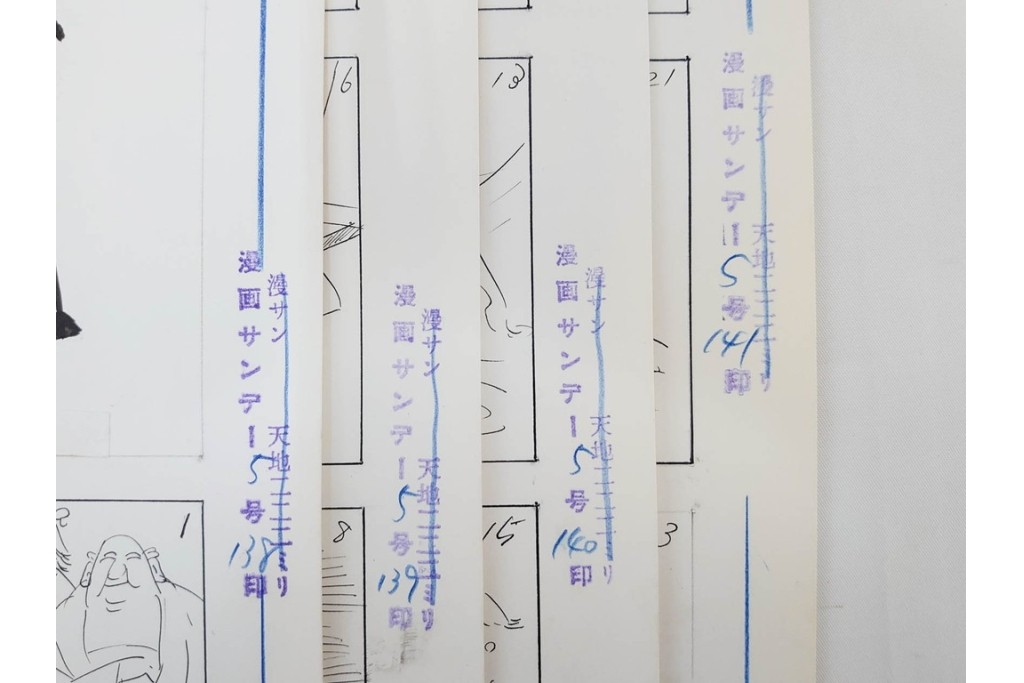 1
漫サン 天地 ミリ
漫画サンデー5号138印
16
8
漫サン 天地 ミリ
漫画サンデー5号139印
13
15
漫サン 天地 ミリ
漫画サンデー5号140印
21
3
漫サン 天地 ミリ
漫画サンデー5号141印